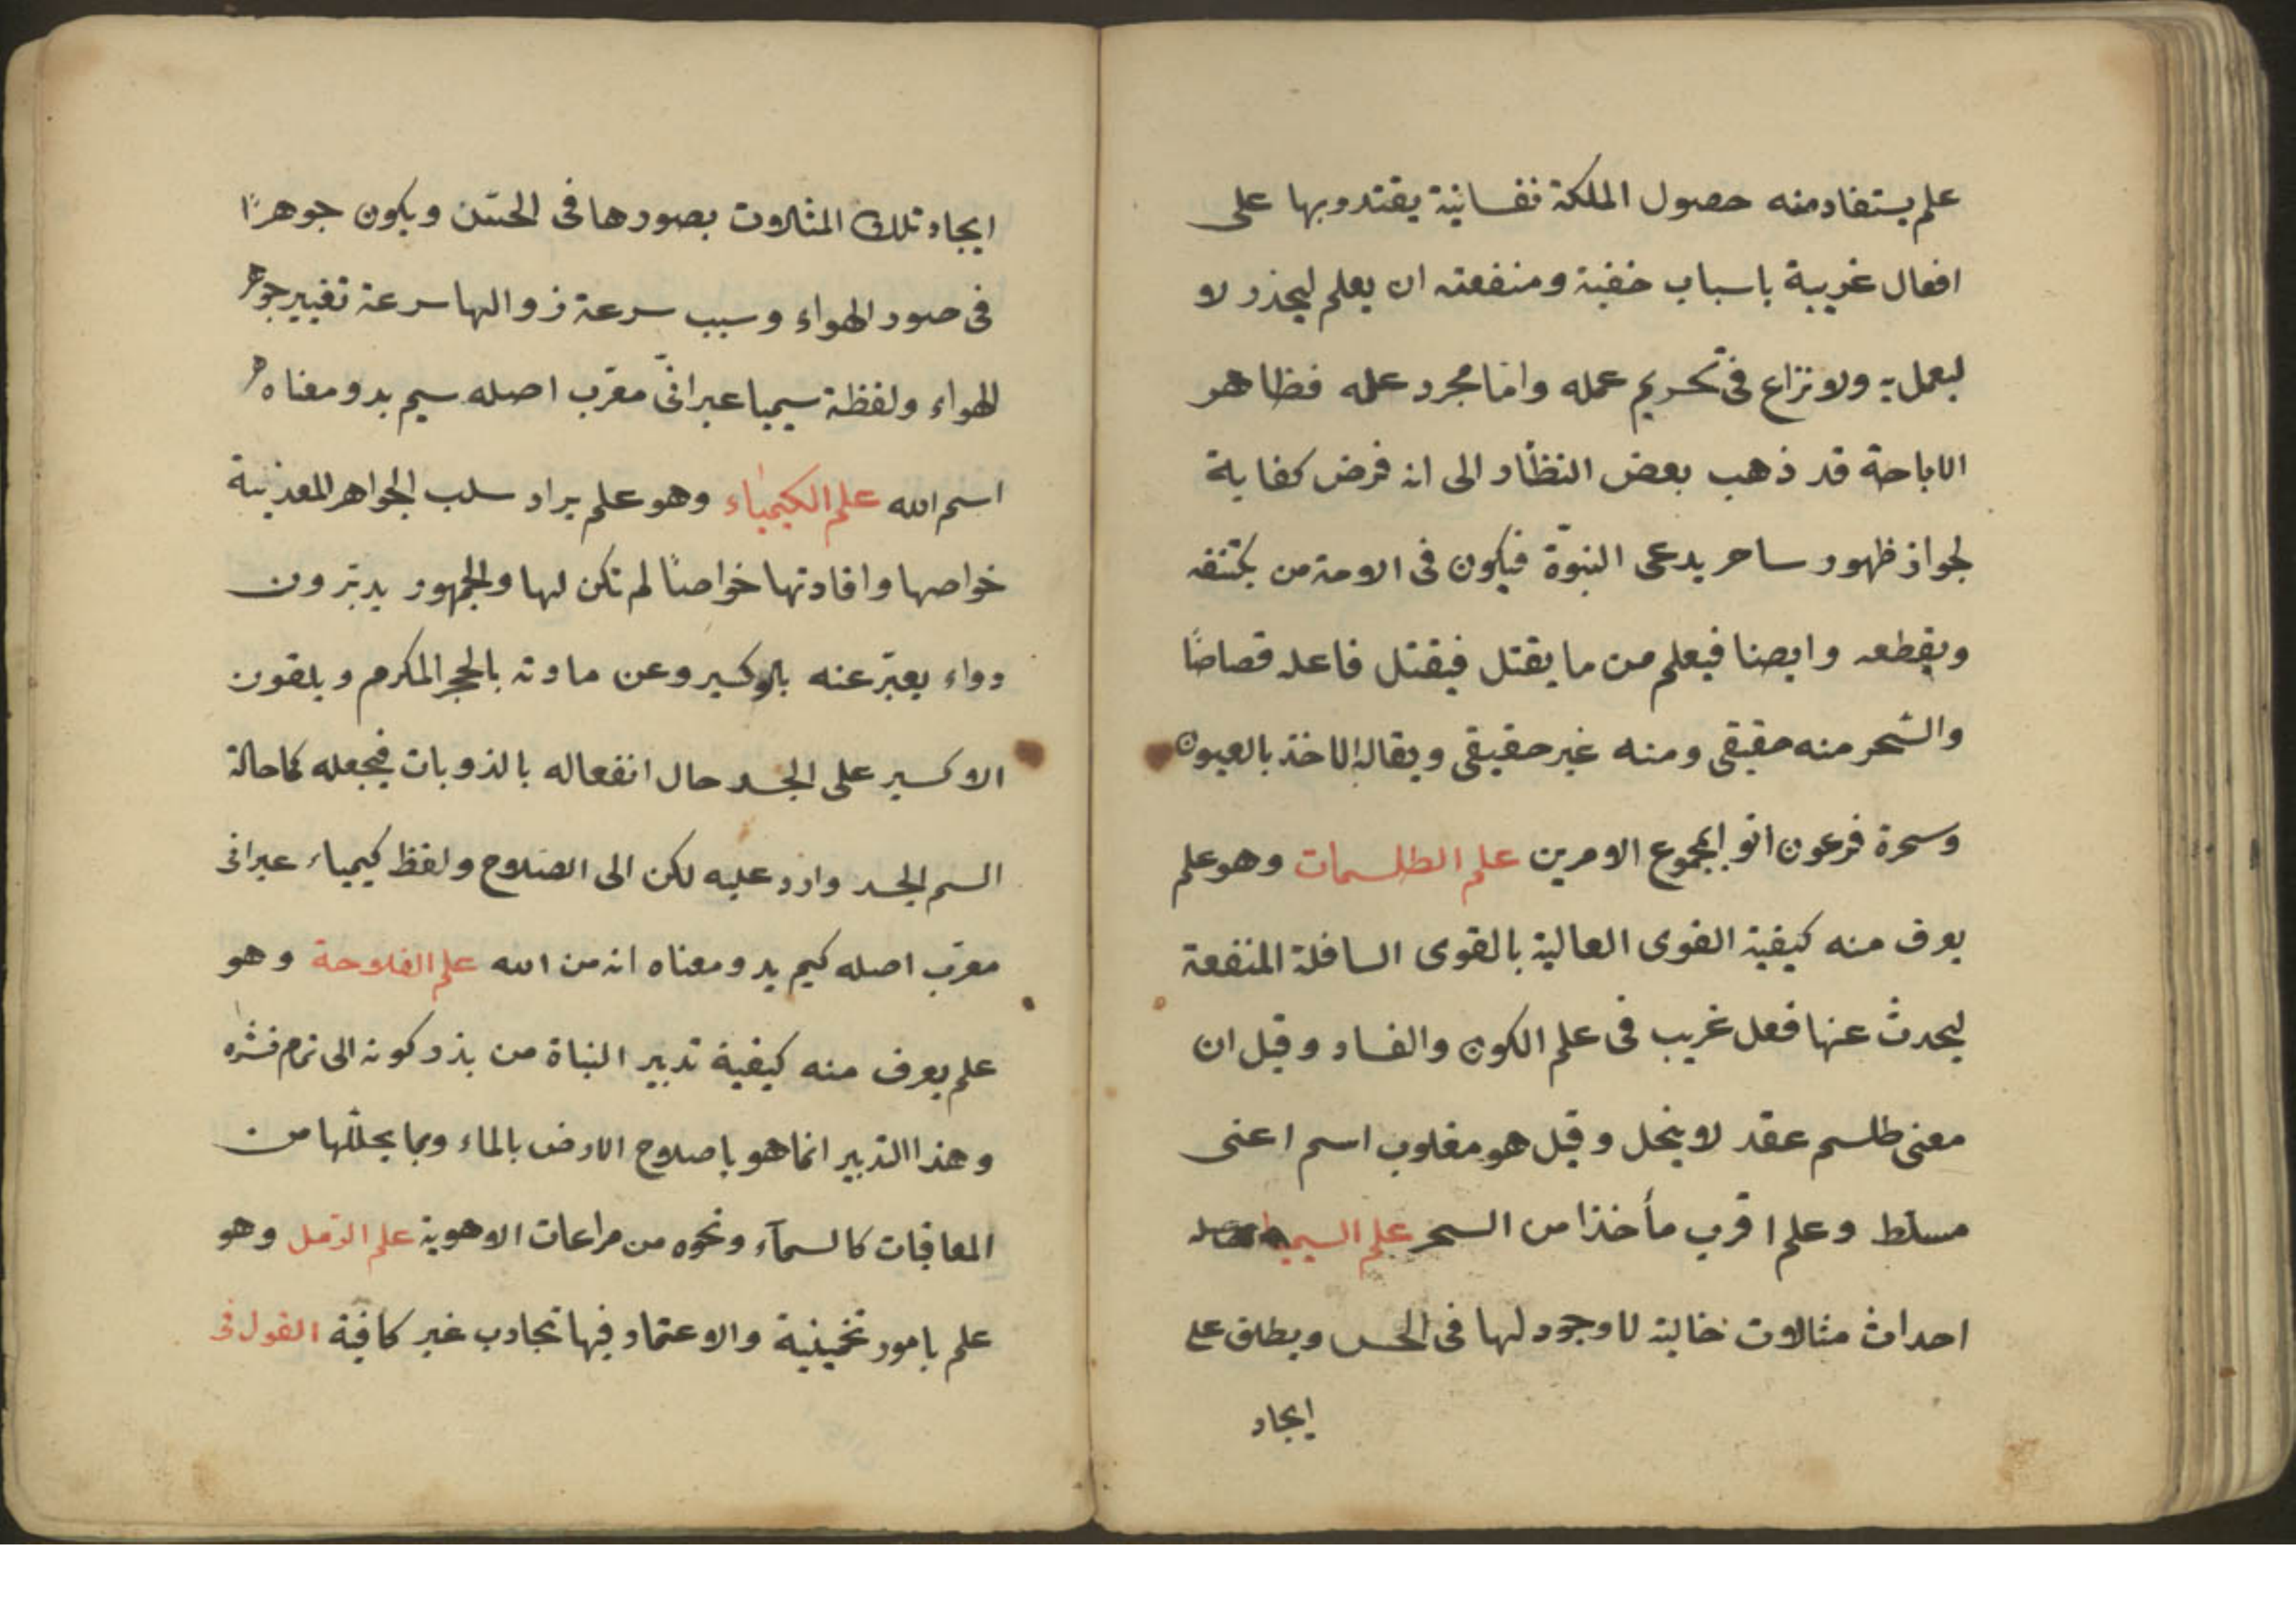 علم يستفاد منه حصول الملكة نفسانية يقتدر بها على
افعال غريبة باسباب خفية ومنفعته ان يعلم ليحذر لا
ليعمل به ولا نزاع فى تحريم عمله واما مجرد علمه فظاهر
الاباحة قد ذهب بعض النظار الى انه فرض كفاية
لجواز ظهور ساحر يدعى النبوّة فيكون فى الامة من يكتنفه
ويقطعه وايضا فيعلم من ما يقتل فيقتل فاعله قصاصًا
والسّحر منه حقيقى ومنه غير حقيقى ويقال له الاخذ بالعيون
وسحرة فرعون اتوا بمجموع الامرين علم الطلسمات وهو علم
يعرف منه كيفية القوى العالية بالقوى السافلة المنفعة
ليحدث عنها فعل غريب فى علم الكون والفساد وقيل ان
معنى طلسم عقد لا ينحل وقيل هو مقلوب اسم اعنى
مسلط وعلم اقرب مأخذا من السحر علم السيميا
احداث مثالات خالية لا وجود لها فى الحس ويطلق على
ايجاد
ايجاد تلك المثالات بصورها فى الحسّ ويكون جوهرًا
فى صور الهواء وسبب سرعة زوالها سرعة تغيير جوهر
الهواء ولفظة سيميا عبرانىّ معرّب اصله سيم يد ومعناه
اسم الله علم الكيمياء وهو علم يراد سلب الجواهر المعدنية
خواصها وافادتها خواصًا لم تكن لها والجمهور يدبّرون
دواء يعبّر عنه بالاكسير وعن مادته بالحجر المكرم ويلقون
الاكسير على الجسد حال انفعاله بالذوبات فيجعله كاحالة
السم الجسد وارد عليه لكن الى الصّلاح ولفظ كيمياء عبرانى
معرّب اصله كيم يد ومعناه انه من الله علم الفلاحة وهو
علم يعرف منه كيفية تدبير النباة من بذر كونه الى تمام نشره
وهذا التدبير انما هو باصلاح الارض بالماء وبما يحللّها من
المعافيات كالسمآء ونحوه من مراعات الاهوية علم الرّمل وهو
علم بامور تخمينية والاعتماد فيها تجارب غير كافية القول فى